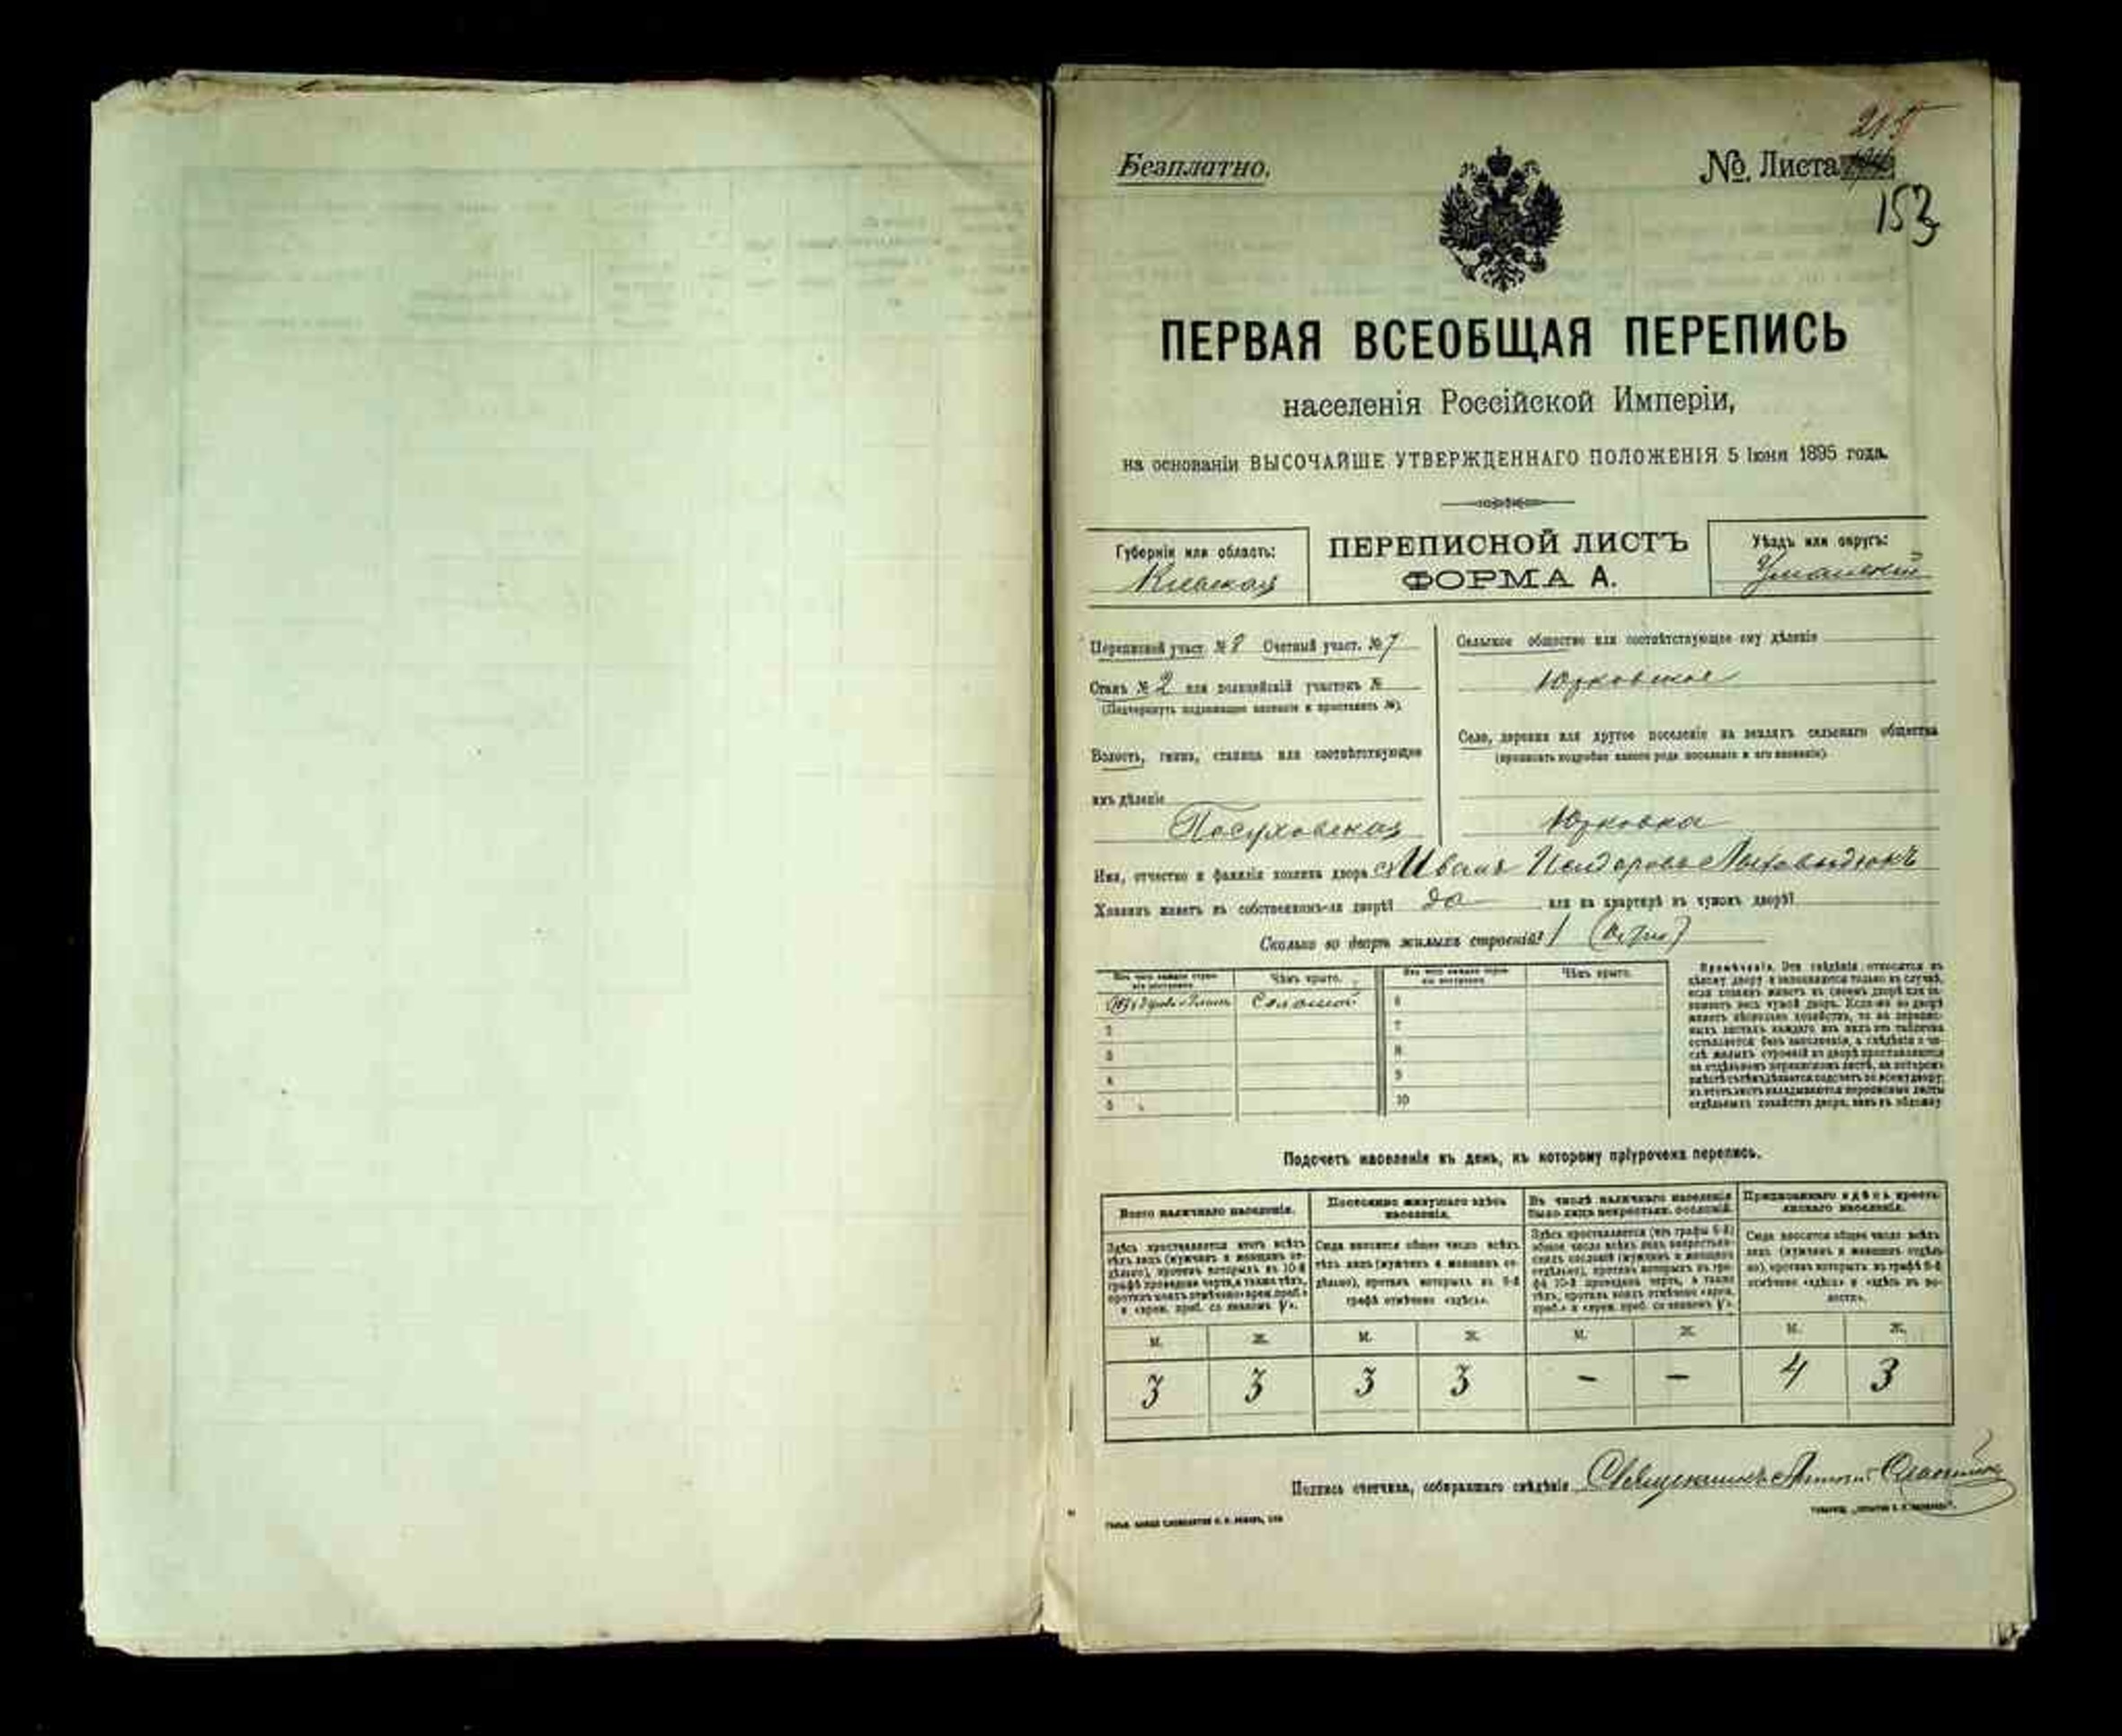 215
Безплатно.
№ Листа
153
ПЕРВАЯ ВСЕОБЩАЯ ПЕРЕПИСЬ
населенія Россійской Имперіи,
на основаніи ВЫСОЧАЙШЕ УТВЕРЖДЕННАГО ПОЛОЖЕНІЯ 5 Іюня 1895 года.
Губернія или область:
Кіевская
ПЕРЕПИСНОЙ ЛИСТЪ
ФОРМА А.
Уѣздъ или округъ:
Уманскій
Переписной участ. № 8 Счетный участ. № 7
Станъ № 2 или полицейскій участокъ №
(Подчеркнуть подлежащее названіе и проставить №).
Волость, гмина, станица или соотвѣтствующее
имъ дѣленіе
Посуховская
Сельское общество или соотвѣтствующее ему дѣленіе
Юрковское
Село, деревня или другое поселеніе на земляхъ сельскаго общества
(прописать подробно какого рода поселеніе и его названіе)
Юрковка
Имя, отчество и фамилія хозяина двора Иванъ
Хозяинъ живетъ въ собственномъ-ли дворѣ? да или на квартирѣ въ чужомъ дворѣ?
Сколько во дворѣ жилыхъ строеній? 1 (одно)
Изъ чего каждое строеніе построено
Чѣмъ крыто.
Изъ чего каждое строеніе построено
Чѣмъ крыто.
Соломой 6
2 7
3 8
4 9
5 10
Примѣчаніе. Эти свѣдѣнія относятся къ
цѣлому двору и заполняются только въ случаѣ,
если хозяинъ живетъ въ своемъ дворѣ или за-
нимаетъ весь чужой дворъ. Если-же во дворѣ
живетъ нѣсколько хозяйствъ, то на перепис-
ныхъ листахъ каждаго изъ нихъ эта табличка
оставляется безъ заполненія, а свѣдѣнія о чи-
слѣ жилыхъ строеній въ дворѣ проставляются
на отдѣльномъ переписномъ листѣ, на которомъ
вмѣстѣ съ тѣмъ дѣлается подсчетъ по всему двору;
въ этотъ листъ вкладываются переписные листы
отдѣльныхъ хозяйствъ двора, какъ въ обложку
Подсчетъ населенія въ день, къ которому пріурочена перепись.
Всего наличнаго населенія.
Постоянно живущаго здѣсь
населенія.
Въ числѣ наличнаго населенія
было лицъ некрестьян. сословій.
Приписаннаго здѣсь кресть-
янскаго населенія.
Здѣсь проставляется итогъ всѣхъ
тѣхъ лицъ (мужчинъ и женщинъ от-
дѣльно), противъ которыхъ въ 10-й
графѣ проведена черта, а также тѣхъ,
противъ коихъ отмѣчено «врем. преб.»
и «врем. преб. со знакомъ V».
Сюда вносится общее число всѣхъ
тѣхъ лицъ (мужчинъ и женщинъ от-
дѣльно), противъ которыхъ въ 9-й
графѣ отмѣчено «здѣсь».
Здѣсь проставляется (изъ графы 6-й)
общее число всѣхъ лицъ некрестьян-
скихъ сословій (мужчинъ и женщинъ
отдѣльно), противъ которыхъ въ гра-
фѣ 10-й проведена черта, а также
тѣхъ, противъ коихъ отмѣчено «врем.
преб.» и «врем. преб. со знакомъ V».
Сюда вносится общее число всѣхъ
лицъ (мужчинъ и женщинъ отдѣль-
но), противъ которыхъ въ графѣ 8-й
отмѣчено «здѣсь» и «здѣсь въ во-
лости».
М. Ж. М. Ж. М. Ж. М. Ж.
3 3 3 3 - - 4 3
Подпись счетчика, собиравшаго свѣдѣнія Священникъ